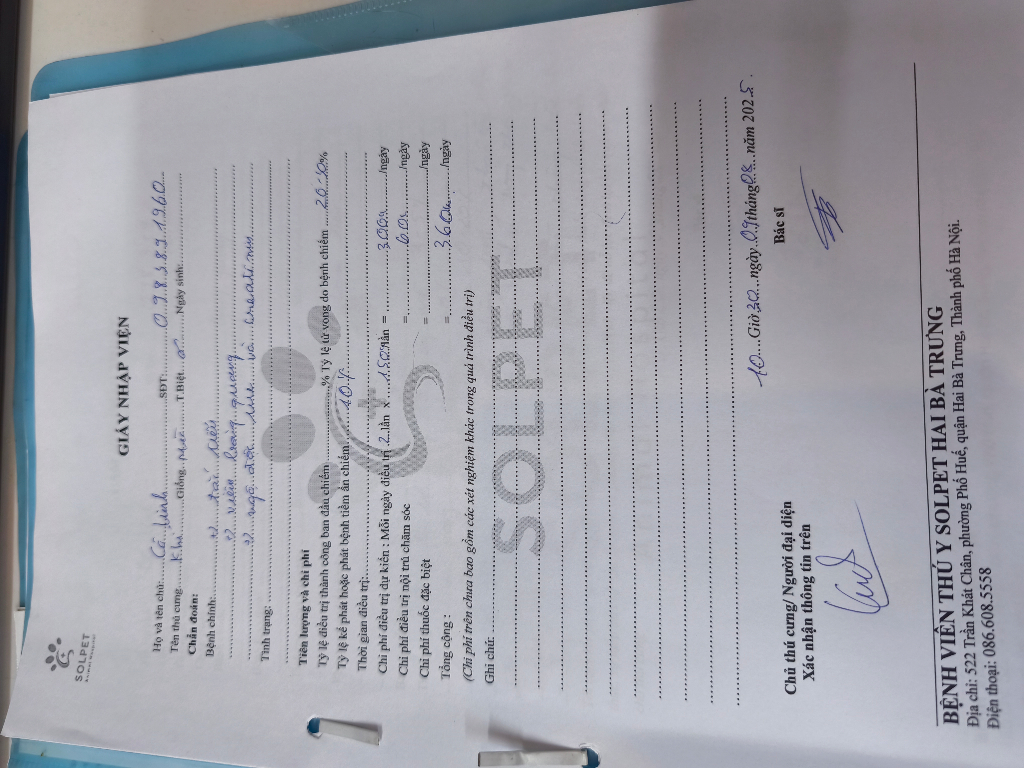 SOLPET
GIẤY NHẬP VIỆN
Họ và tên chủ: Cô Linh SĐT: 0985891960
Tên thú cưng: Giống: T.Biệt: ♂ Ngày sinh:
Chẩn đoán:
Bệnh chính: 1) tắc niệu
2) viêm bàng quang
3) ngộ độc ure và creatinin
Tình trạng:
Tiên lượng và chi phí
Tỷ lệ điều trị thành công ban đầu chiếm % Tỷ lệ tử vong do bệnh chiếm %
Tỷ lệ kế phát hoặc phát bệnh tiềm ẩn chiếm
Thời gian điều trị:
Chi phí điều trị dự kiến : Mỗi ngày điều trị 2 lần x 150/lần = 300k /ngày
Chi phí điều trị nội trú chăm sóc = 60k /ngày
Chi phí thuốc đặc biệt = /ngày
Tổng cộng : = 360k /ngày
(Chi phí trên chưa bao gồm các xét nghiệm khác trong quá trình điều trị)
Ghi chú:
SOLPET
10 Giờ 30 ngày 09 tháng 08 năm 2025
Chủ thú cưng/ Người đại diện Bác sĩ
Xác nhận thông tin trên
BỆNH VIỆN THÚ Y SOLPET HAI BÀ TRƯNG
Địa chỉ: 522 Trần Khát Chân, phường Phố Huế, quận Hai Bà Trưng, Thành phố Hà Nội.
Điện thoại: 086.608.5558